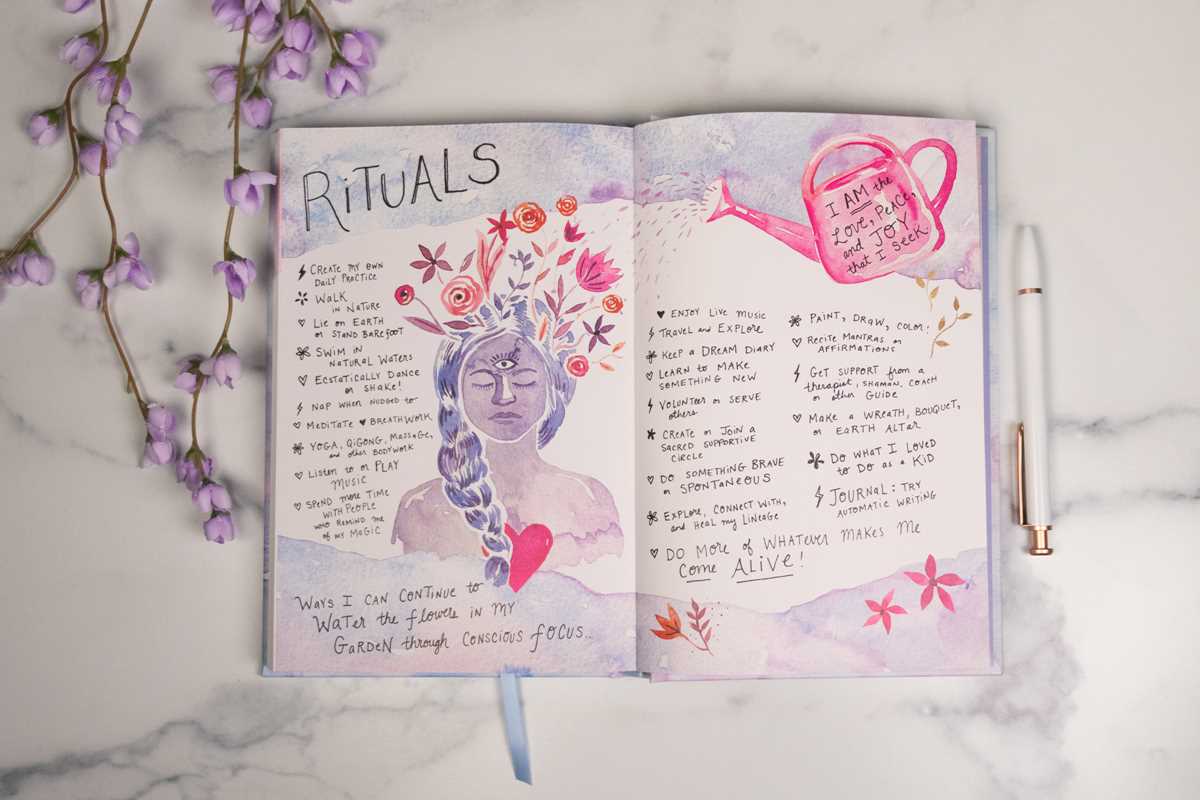 RiTUALS
CREATE MY OWN
DAILY PRACTICE
WALK
IN NATURE
LIE ON EARTH
or STAND BAREFOOT
SWIM IN
NATURAL WATERS
ECSTATICALLY DANCE
or SHAKE!
NAP WHEN NUDGED TO
MEDITATE ♥ BREATHWORK
YOGA, QIGONG, MASSAGE,
and OTHER BODYWORK
LISTEN TO or PLAY
MUSIC
SPEND MORE TIME
WITH PEOPLE
WHO REMIND ME
OF MY MAGIC
WAYS I CAN CONTINUE to
WATER the fLOWERS IN MY
GARDEN through CONSCIOUS fOCUS...
I AM the
LOVE, PEACE,
and JOY
that I SEEK.
ENJOY LIVE MUSIC
TRAVEL and EXPLORE
KEEP A DREAM DIARY
LEARN to MAKE
SOMETHING NEW
VOLUNTEER or SERVE
others
CREATE or JOIN A
SACRED SUPPORTIVE
CIRCLE
DO SOMETHING BRAVE
or SPONTANEOUS
EXPLORE, CONNECT WITH,
and HEAL my LINEAGE
PAINT, DRAW, COLOR!
RECITE MANTRAS or
AFFIRMATIONS
GET SUPPORT from a
therapist, SHAMAN, COACH
or other GUIDE
MAKE A WREATH, BOUQUET,
or EARTH ALTAR
DO WHAT I LOVED
to DO as a KID
JOURNAL: TRY
AUTOMATIC WRITING
DO MORE of WHATEVER MAKES ME
COME ALIVE!